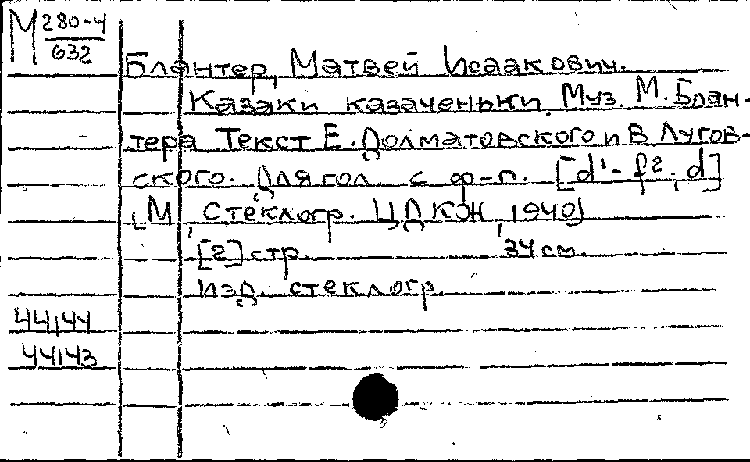 М 280-4
632
Блантер, Матвей Исаакович.
Казаки казаченьки. Муз. М. Блан-
тера Текст Е. Долматовского и В Лугов-
ского. Для гол. с ф-п. [d'- f²; d]
[М, Стеклогр. ЦДКЖ, 1940]
[2] стр. 34 см.
Изд. стеклогр.
44,44
44,43